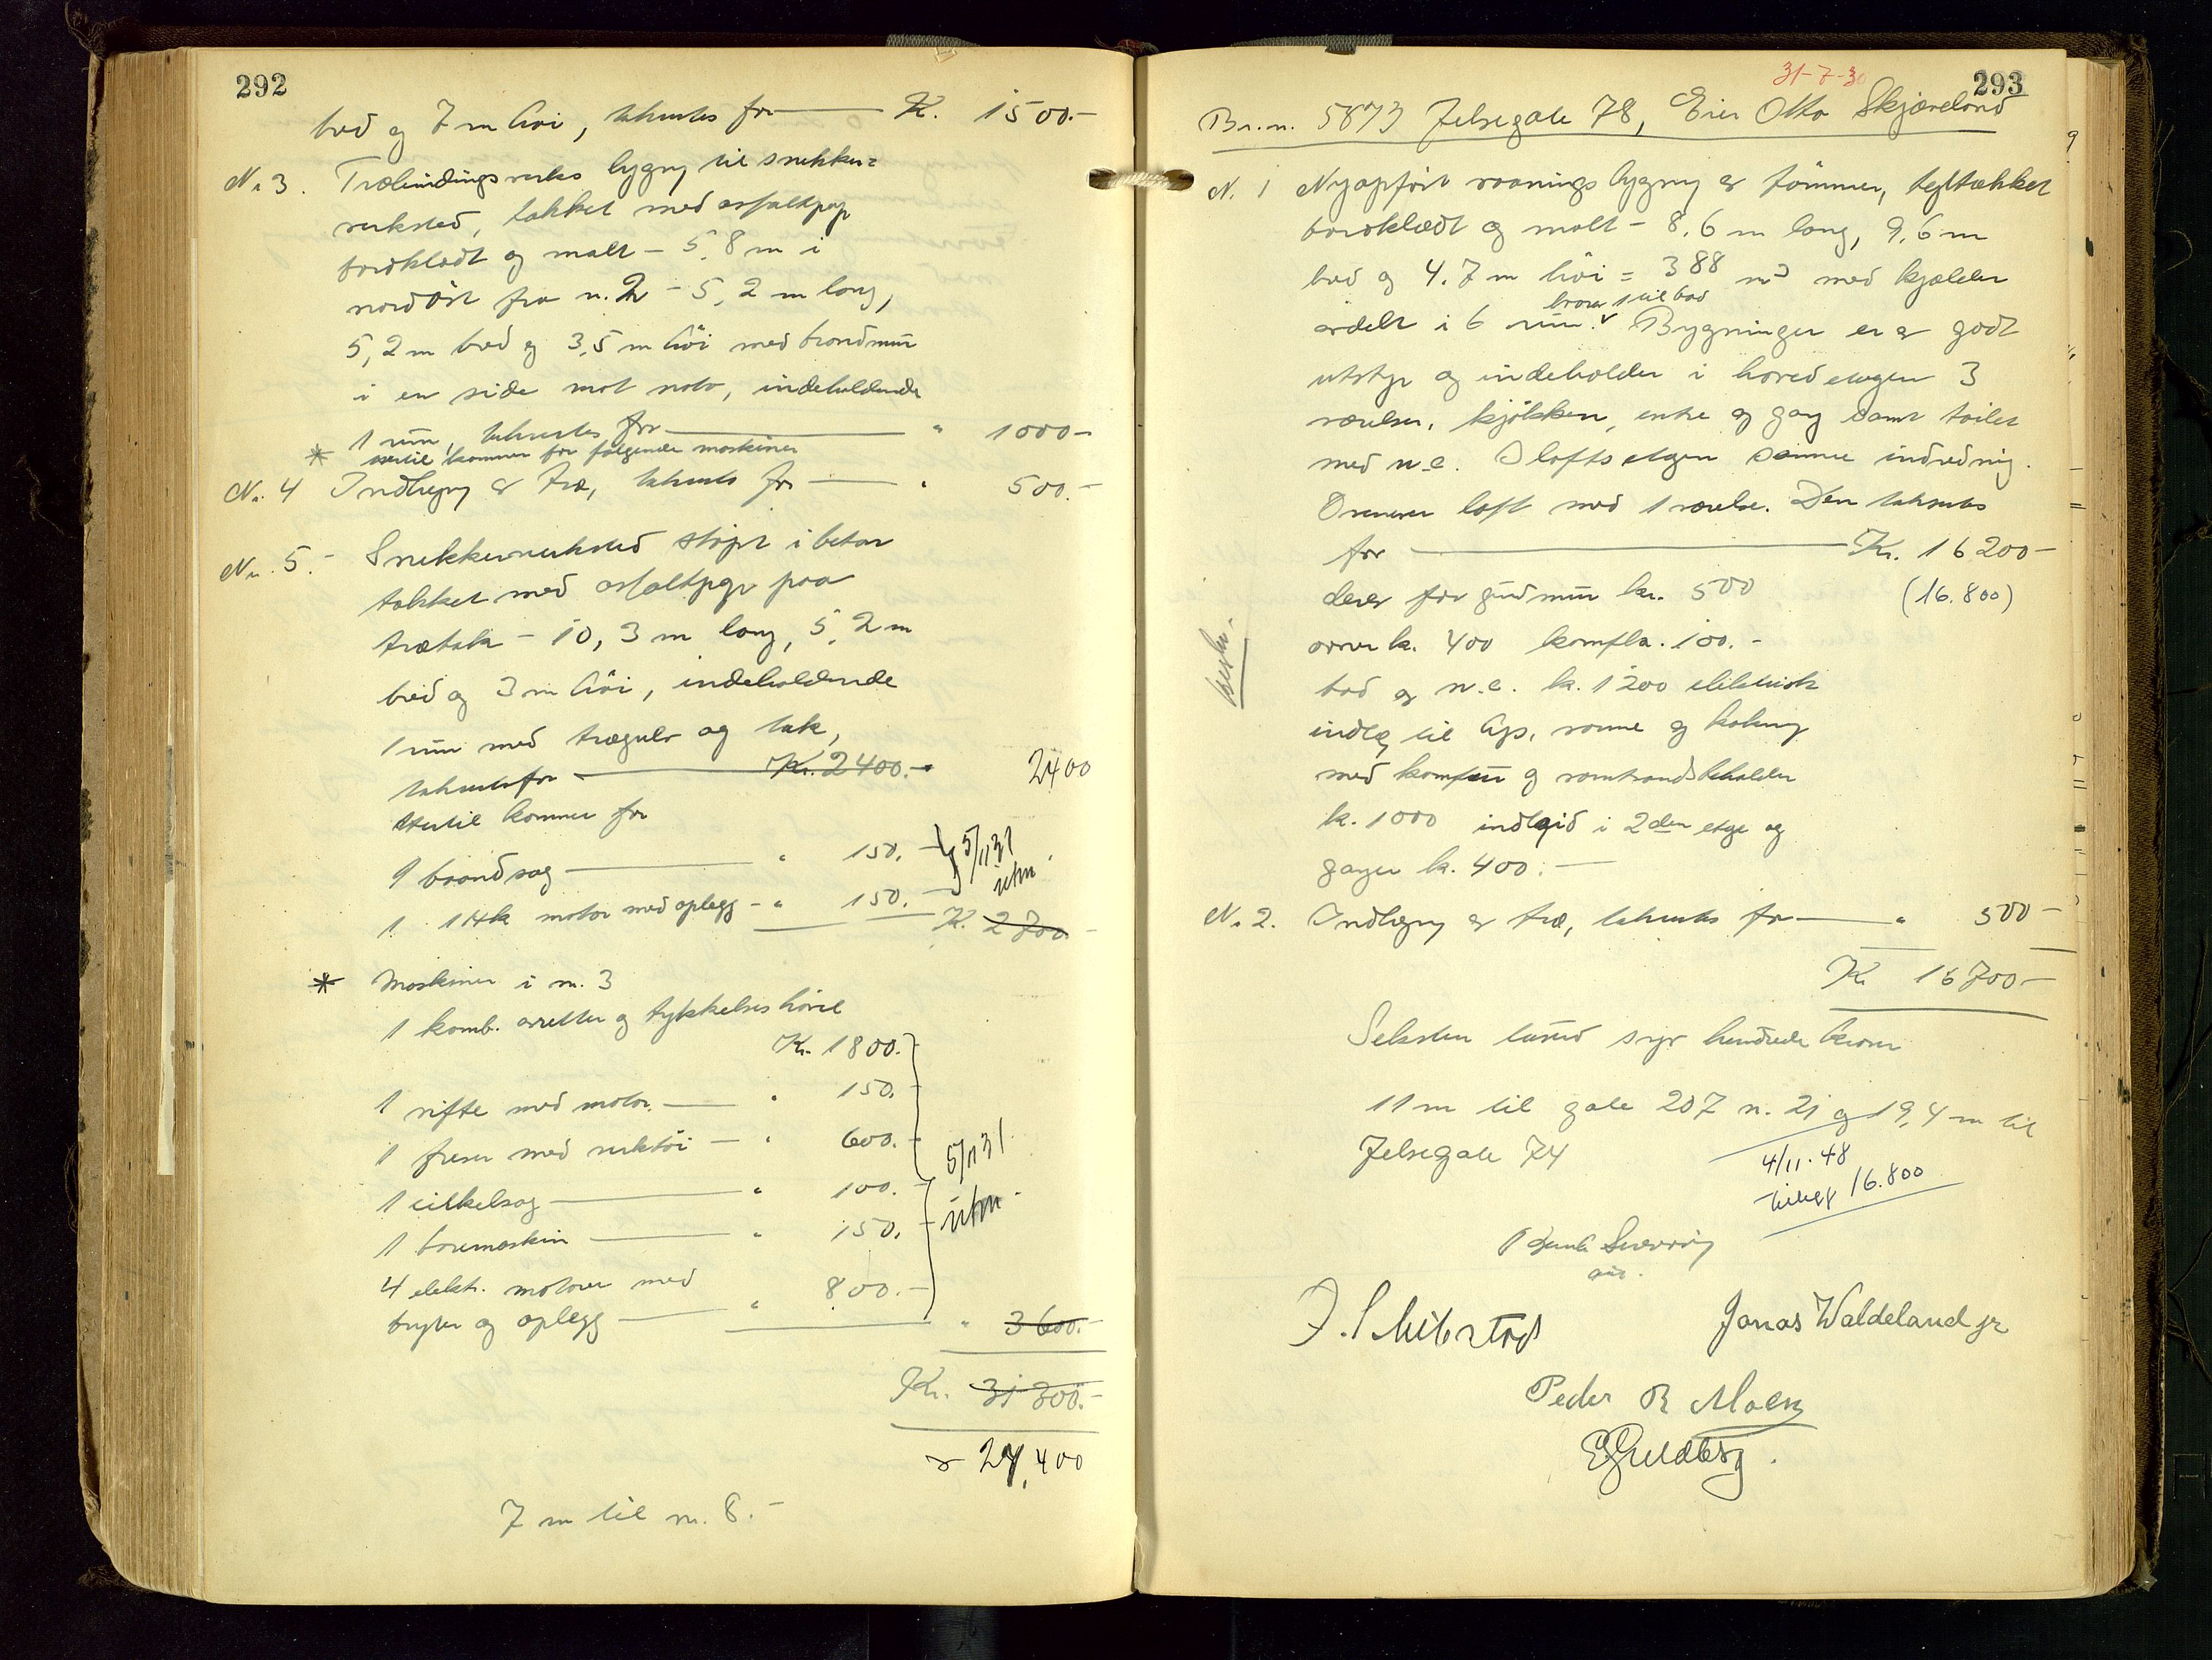 292
bred og 7 m høi, takseres for — K. 1500.-
N. 3. Træbindingsverks bygng til snekker=
verksted, tækket med asfaltpap
bordklædt og malt - 5,8 m i
nordöst fra n. 2 - 5,2 m lang,
5,2 m bred og 3,5 m höi med brandmur
i en side mot nabo, indeholdende
1 rum, takseres for — " 1000-
* Hertil kommer for følgende maskiner
N. 4 Indhegng av træ, takseres for — " 500.-
N. 5.- Snekkerverksted støpt i beton
tækket med asfaltpap paa
trætak - 10,3 m lang, 5,2 m
bred og 3 m höi, indeholdende
1 rum med trægulv og tak,
takseres for — Kr. 2400.- 2400
Hertil kommer for
1 baandsag — " 150.- 5/1131
1 1 Hk motor med oplegg - " 150.- utm.
K. 2700.-
* Maskiner i n. 3
1 komb. avretter og tykkelses høvel
Kr. 1800.-
1 rifte med motor. — " 150.-
1 freser med verktöi — " 600.- 5/1131
1 cirkelsag — " 100.- utm.
1 boremaskin — " 150.-
4 elektr. motorer med
bryter og oplegg — " 800.-
" 3600.-
Kr. 31300.-
27,400
7 m til n. 8.-
31-7-30
293
Br.n. 5873 Jelsegate 78, Eier Otto Skjæveland
N. 1 Nyopfört vaanings bygng av tömmer, tegltækket
bordklædt og malt - 8,6 m lang, 9,6 m
bred og 4.7 m höi = 388 m3 med kjælder
avdelt i 6 rum. Bygningen er av godt
hvorav 1 til bad
utstyr og indeholder i hovedetagen 3
værelser, kjökken, entre og gang samt toilet
med w.c. I loftsetagen samme indredning.
Ovenover loft med 1 værelse. Den takseres
for — Kr. 16200-
derav for grundmur kr. 500 (16.800)
ovner k. 400 komfur. 100.-
bad og w.c. k. 1200 elektrisk
indlæg til lys, varme og kokning
med komfur og varmtvandsbeholder
k. 1000 i 2den etage og
ganger k. 400.-
N. 2. Indhegng av træ, takseres for — " 500-
K. 16700-
Seksten tusind syv hundrede kroner
11 m til gate 207 n. 21 og 19,4 m til
Jelsegate 74
4/11.48
tillegg 16.800
Jonas Waldeland jr
Peder R Moen
E Guldberg.